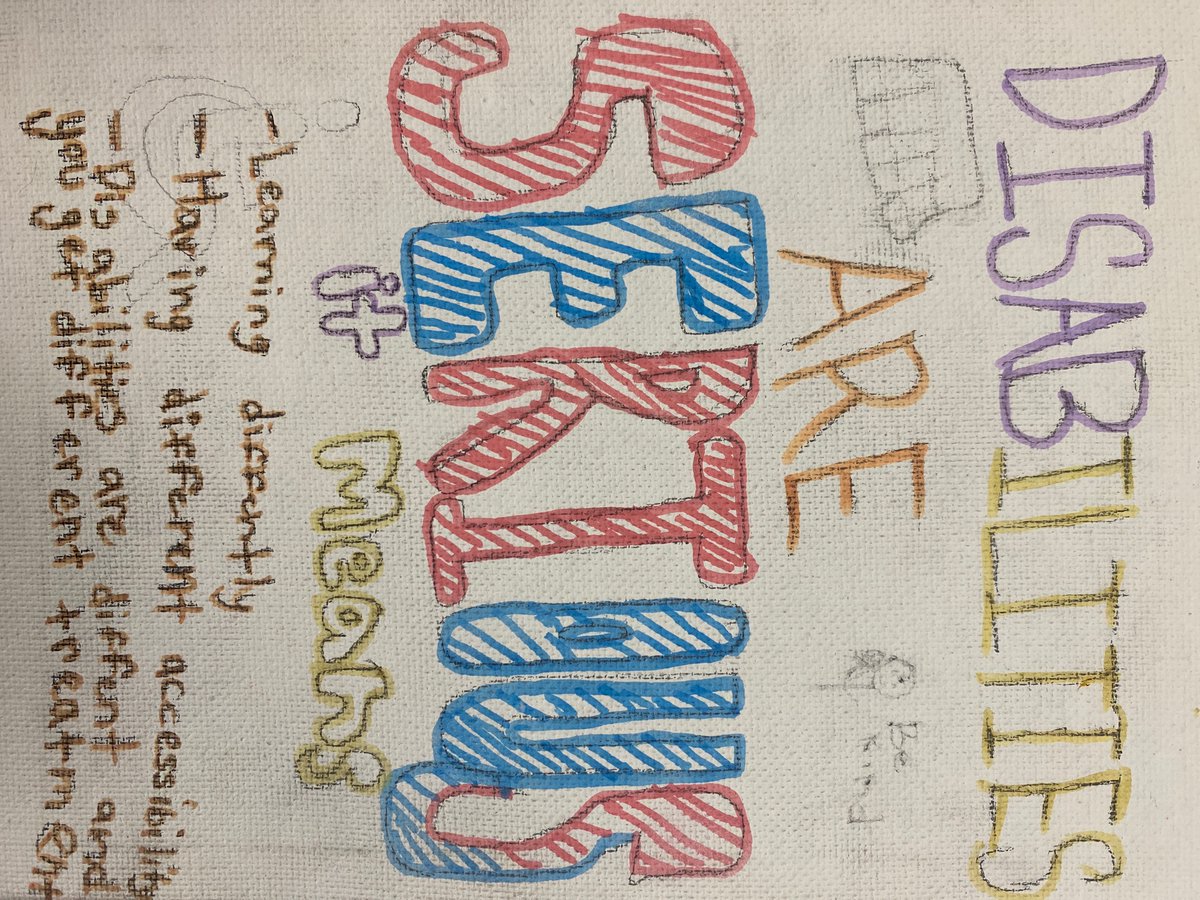 DISABILITIES
ARE
Be
kind
SERIOUS
it Means
-Learning diffrently
-Having different accessibility
-Disabilitis are diffent and
you get different treatment